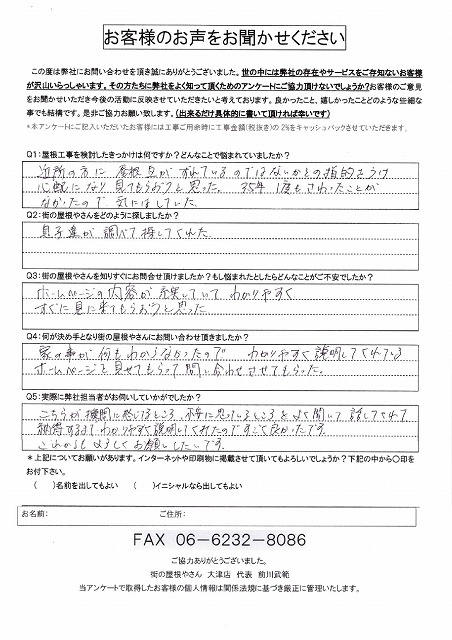 お客様のお声をお聞かせください
この度は弊社にお問い合わせを頂き誠にありがとうございました。世の中には弊社の存在やサービスをご存知ないお客様
が沢山いらっしゃいます。その方たちに弊社をよく知って頂くためのアンケートにご協力頂けないでしょうか?お客様のご意見
をお聞かせいただき今後の活動に反映させていただきたいと考えております。良かったこと、嬉しかったことどのような些細な
事でも結構です。是非ご協力お願い致します。(出来るだけ具体的に書いて頂ければ幸いです)
*本アンケートにご記入いただいたお客様には工事ご用命時に工事金額(税抜き)の2%をキャッシュバックさせていただきます。
Q1:屋根工事を検討したきっかけは何ですか?どんなことで悩まれていましたか?
近所の方に 屋根瓦がずれているのではないかとの指摘をうけ
心配になり 見てもらおうと思った。 35年 1度もさわったことが
なかったので 気にはしていた
Q2:街の屋根やさんをどのように探しましたか?
息子達が 調べて 探してくれた
Q3:街の屋根やさんを知りすぐにお問合せ頂けましたか?もし悩まれたとしたらどんなことがご不安でしたか?
ホームページの内容が 充実していて わかりやすく
すぐに見に来てもらおうと思った
Q4:何が決め手となり街の屋根やさんにお問い合わせ頂きましたか?
家の事が 何もわからなかったので わかりやすく説明してくれている
ホームページを見せてもらって 問い合わせさせてもらった。
Q5:実際に弊社担当者がお伺いしていかがでしたか?
こちらが 疑問に感じるところ 不安に思っているところを よく聞いて 話してくれて
納得するまで わかりやすく説明してくれたので すごく良かったです
これからも よろしく お願いしたいです。
*上記についてお願いがあります。インターネットや印刷物に掲載させて頂いてもよろしいでしょうか?下記の中から〇印を
お付下さい。
( )名前を出してもよい ( )イニシャルなら出してもよい
お名前: ご住所:
FAX 06-6232-8086
ご協力ありがとうございました。
街の屋根やさん 大津店 代表 前川武範
当アンケートで取得したお客様の個人情報は関係法規に基づき厳正に管理いたします。